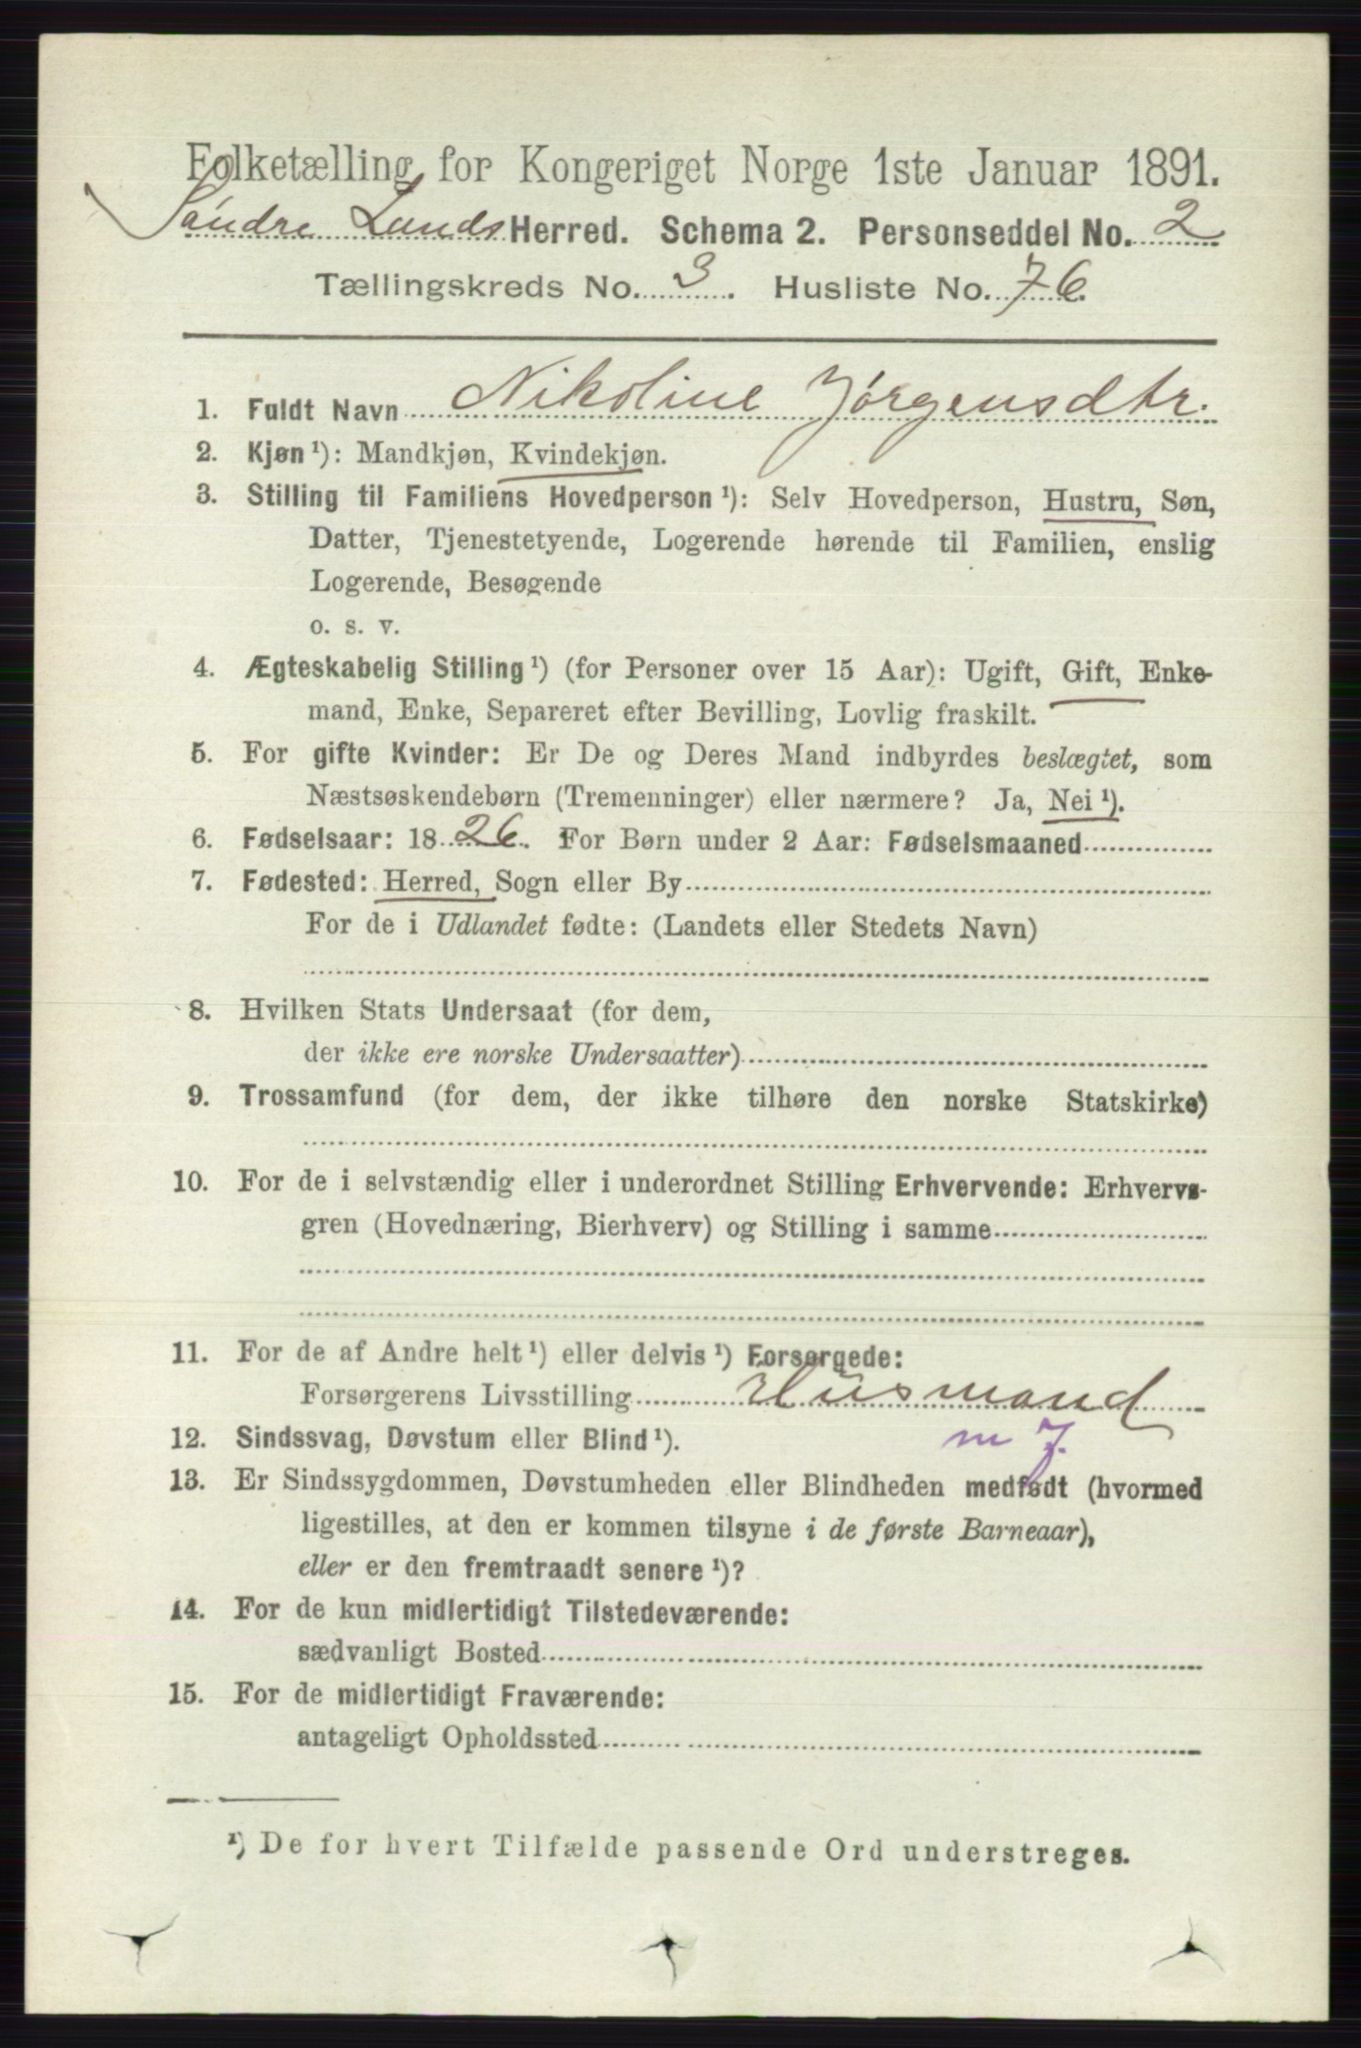 Folketælling for Kongeriget Norge 1ste Januar 1891.
Søndre Lands Herred. Schema 2. Personseddel No. 2
Tællingskreds No. 3. Husliste No. 76.
1. Fuldt Navn Nikoline Jörgensdtr.
2. Kjøn ¹): Mandkjøn, Kvindekjøn.
3. Stilling til Familiens Hovedperson ¹): Selv Hovedperson, Hustru, Søn,
Datter, Tjenestetyende, Logerende hørende til Familien, enslig
Logerende, Besøgende
o. s. v.
4. Ægteskabelig Stilling ¹) (for Personer over 15 Aar): Ugift, Gift, Enke-
mand, Enke, Separeret efter Bevilling, Lovlig fraskilt.
5. For gifte Kvinder: Er De og Deres Mand indbyrdes beslægtet, som
Næstsøskendebørn (Tremenninger) eller nærmere? Ja, Nei ¹).
6. Fødselsaar: 1826. For Børn under 2 Aar: Fødselsmaaned
7. Fødested: Herred, Sogn eller By
For de i Udlandet fødte: (Landets eller Stedets Navn)
8. Hvilken Stats Undersaat (for dem,
der ikke ere norske Undersaatter)
9. Trossamfund (for dem, der ikke tilhøre den norske Statskirke)
10. For de i selvstændig eller i underordnet Stilling Erhvervende: Erhvervs-
gren (Hovednæring, Bierhverv) og Stilling i samme
11. For de af Andre helt ¹) eller delvis ¹) Forsørgede:
Forsørgerens Livsstilling Husmand
12. Sindssvag, Døvstum eller Blind ¹). m J.
13. Er Sindssygdommen, Døvstumheden eller Blindheden medfødt (hvormed
ligestilles, at den er kommen tilsyne i de første Barneaar),
eller er den fremtraadt senere ¹)?
14. For de kun midlertidigt Tilstedeværende:
sædvanligt Bosted
15. For de midlertidigt Fraværende:
antageligt Opholdssted
¹) De for hvert Tilfælde passende Ord understreges.